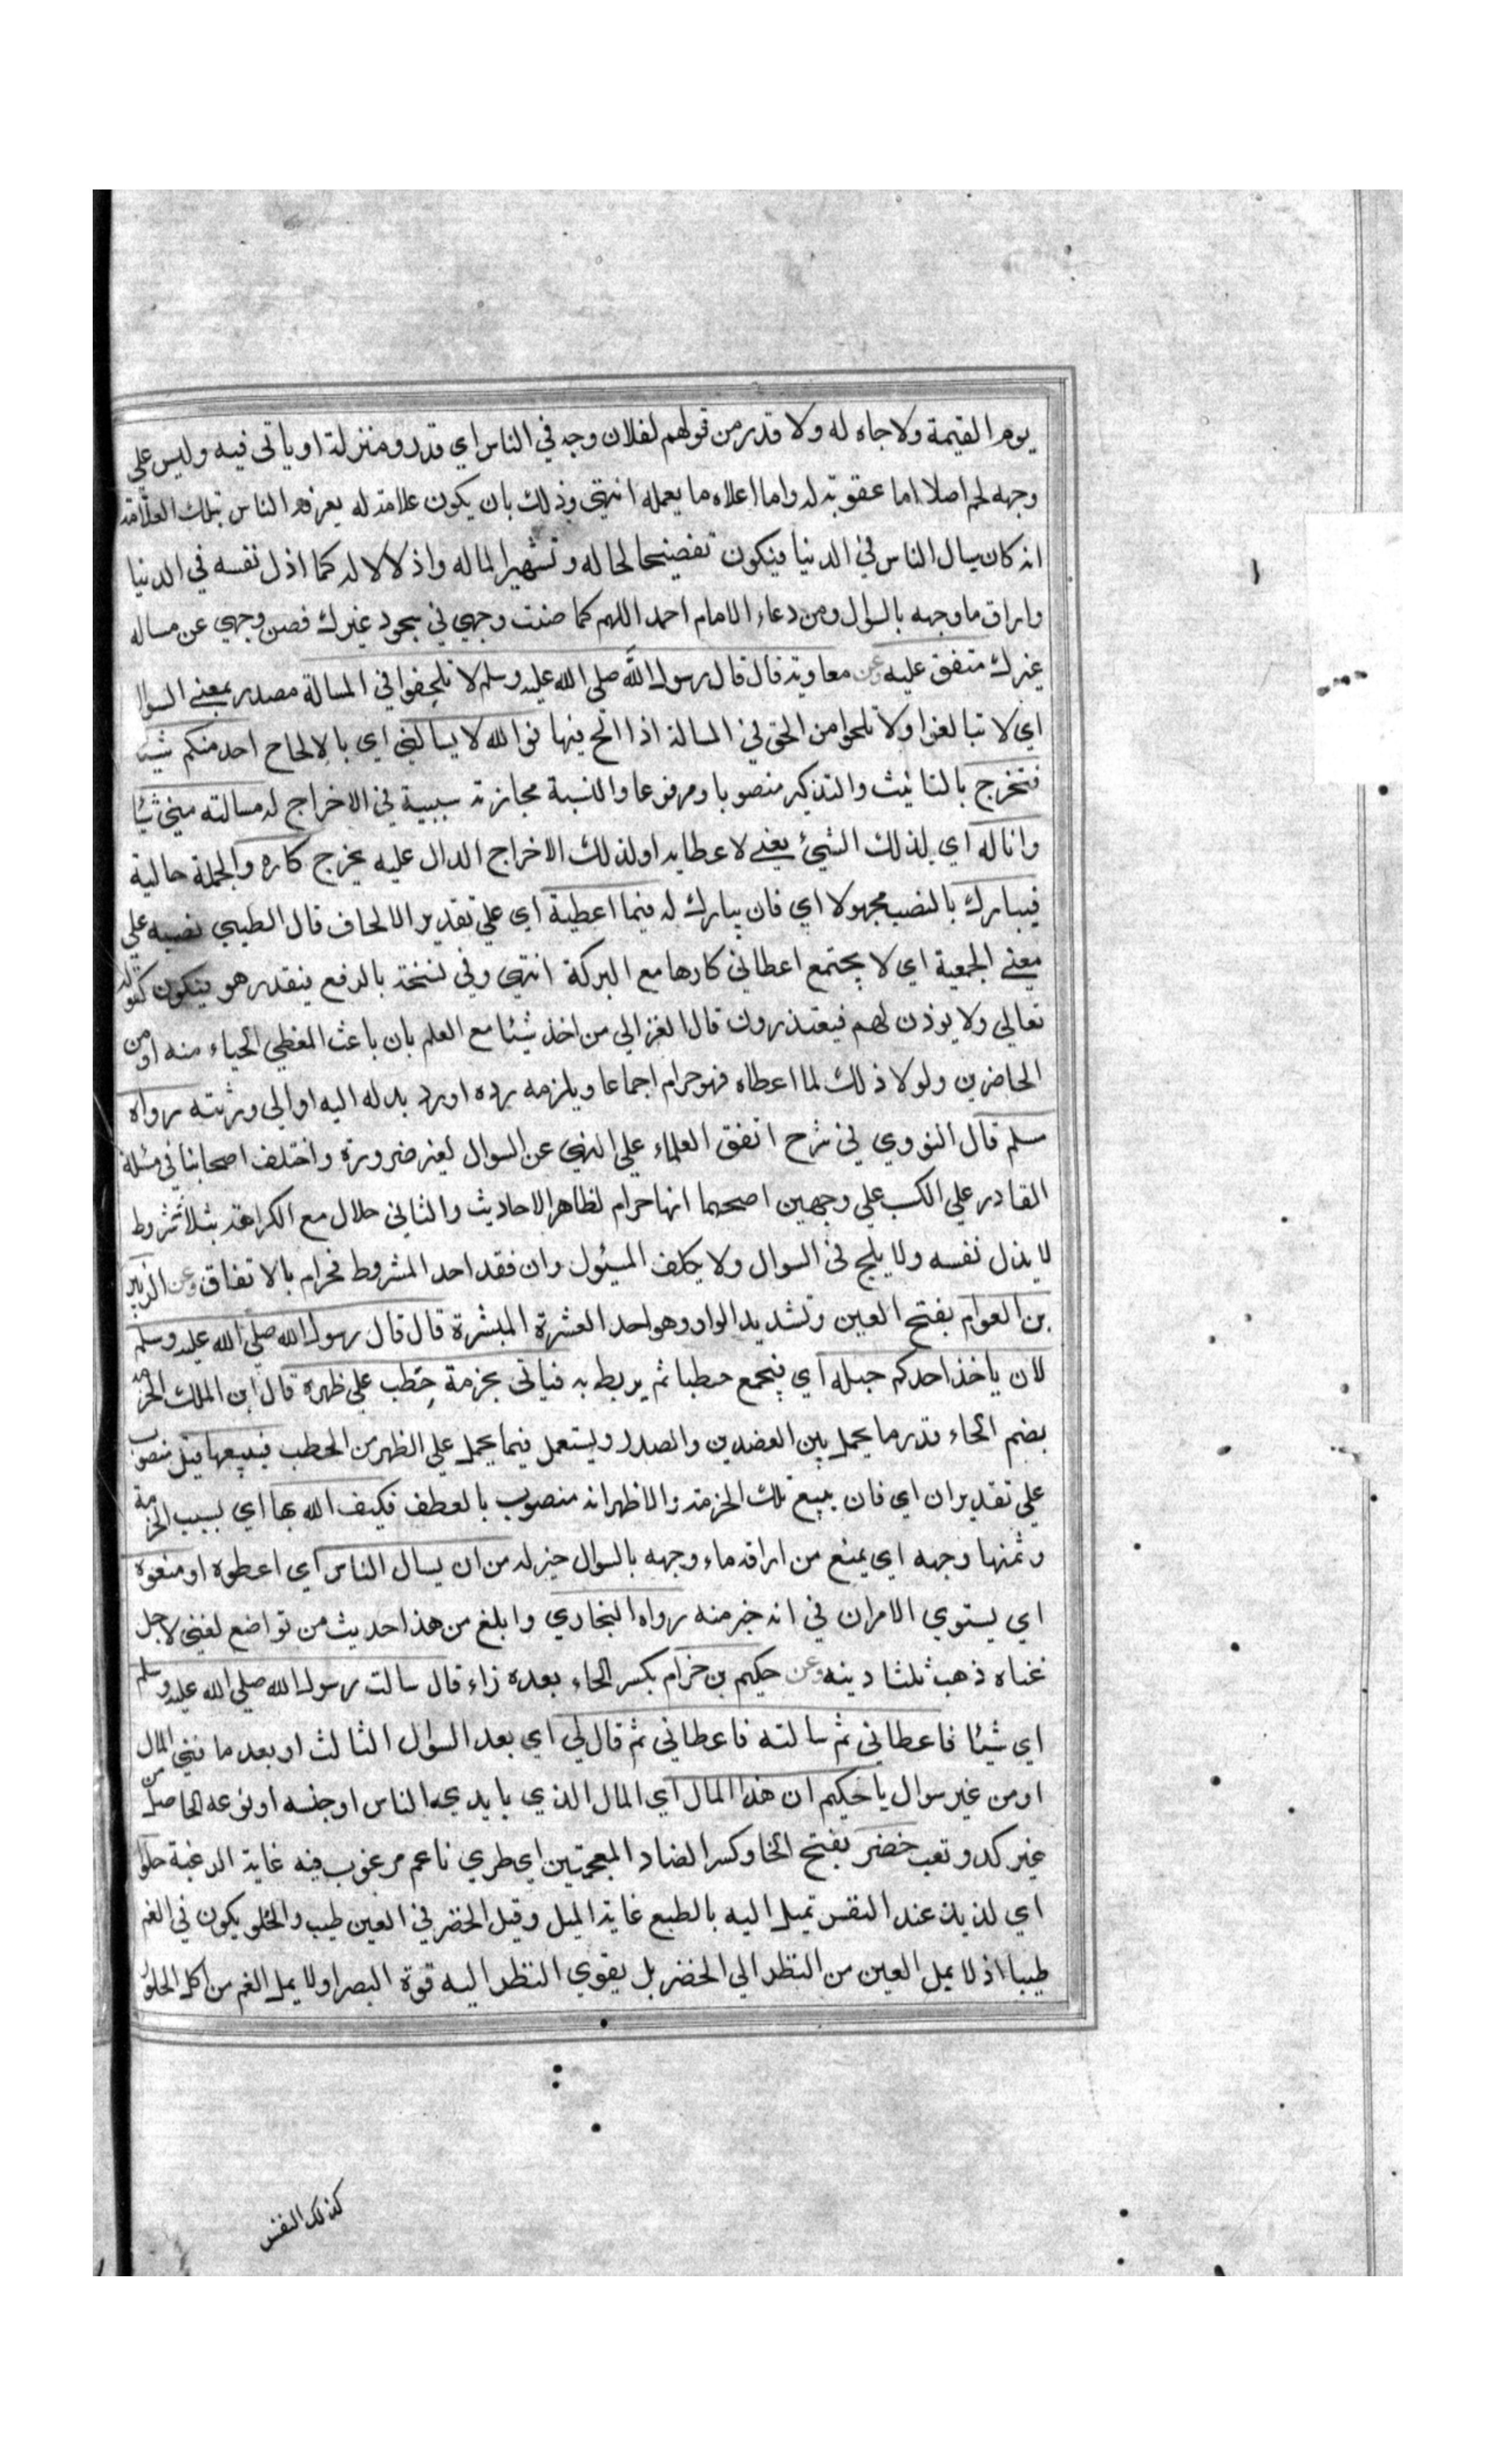 يوم القيمة ولا جاه له ولا قدر من قولهم لفلان وجه في الناس اي قدر ومنزلة او ياتى فيه وليس على
وجهه لحم اصلا اما عقوبة له واما اعلاه ما يعمله انتهى وذلك بان يكون علامة له يعرفه الناس بتلك العلامة
انه كان يسال الناس في الدنيا فيكون تفضيحا لحاله وتشهيرا لماله واذلالا له كما اذل نفسه في الدنيا
واراق ما وجهه بالسوال ومن دعاء الامام احمد اللهم كما صنت وجهي في سجود غيرك فصن وجهي عن مساله
غيرك متفق عليه وعن معاوية قال قال رسول الله صلى الله عليه وسلم لا تلحفوا في المسالة مصدر بمعني السوال
اي لا تبالغوا ولا تلحوا من الحق في المسالة اذا الح فيها فوالله لا يسالني اي بالالحاح احد منكم شيئا
فتخرج بالتانيث والتذكير منصوبا ومرفوعا والنسبة مجازية سببية في الاخراج له مسالته مني شيئا
وانا له اي لذلك الشيئ يعني لاعطايه او لذلك الاخراج الدال عليه يخرج كاره والجملة حالية
فيبارك بالنصب مجهولا اي فان يبارك له فيما اعطية اي على تقدير الالحاف قال الطيبي نصبه على
معني الجمعية اي لا يجتمع اعطائي كارها مع البركة انتهى وفي نسخة بالرفع فيقدر هو فيكون كقوله
تعالي ولا يوذن لهم فيعتذرون قال الغزالي من اخذ شيئا مع العلم بان باعث المعطي الحياء منه او من
الحاضرين ولولا ذلك لما اعطاه فهو حرام اجماعا ويلزمه رده او رد بدله اليه او الي ورثته رواه
مسلم قال النووي في شرح اتفق العلماء على النهي عن السوال لغير ضرورة واختلف اصحابنا في مسئلة
القادر علي الكسب علي وجهين اصحهما انها حرام لظاهر الاحاديث والثاني حلال مع الكراهة بثلاثة شروط
لا يذل نفسه ولا يلح في السوال ولا يكلف المسئول وان فقد احد الشروط فحرام بالاتفاق وعن الزبير
بن العوام بفتح العين وتشديد الواو وهو احد العشرة المبشرة قال قال رسول الله صلى الله عليه وسلم
لان ياخذ احدكم حبله اي فيجمع حطبا ثم يربط به فياتى بحزمة حطب على ظهره قال ابن الملك الحزمة
بضم الحاء قدر ما يحمل بين العضدين والصدر ويستعمل فيما يحمل علي الظهر من الحطب فيبيعها قيل منصوب
علي تقدير ان اي فان يبيع تلك الحزمة والاظهر انه منصوب بالعطف فيكف الله بها اي بسبب الحزمة
وثمنها وجهه اي يمنع من اراقة ماء وجهه بالسوال خير له من ان يسال الناس اي اعطوه او منعوه
اي يستوي الامران في انه خير منه رواه البخاري وابلغ من هذا حديث من تواضع لغني لاجل
غناه ذهب ثلثا دينه وعن حكيم بن حزام بكسر الحاء بعده زاء قال سالت رسول الله صلى الله عليه وسلم
اي شيئا فاعطاني ثم سالته فاعطاني ثم قال لي اي بعد السؤال الثالث او بعد ما فني المال
او من غير سوال يا حكيم ان هذا المال اي المال الذي بايدي الناس او جنسه او نوعه الحاصل من
غير كد وتعب خضر بفتح الخا وكسر الضاد المعجمتين اي طري ناعم مرغوب فيه غاية الرغبة حلو
اي لذيذ عند النفس تميل اليه بالطبع غاية الميل وقيل الخضر في العين طيب والحلو يكون في الفم
طيبا اذ لا يمل العين من النظر الي الخضر بل يقوي النظر اليه قوة البصر ولا يمل الفم من اكل الحلو
كذلك النفس